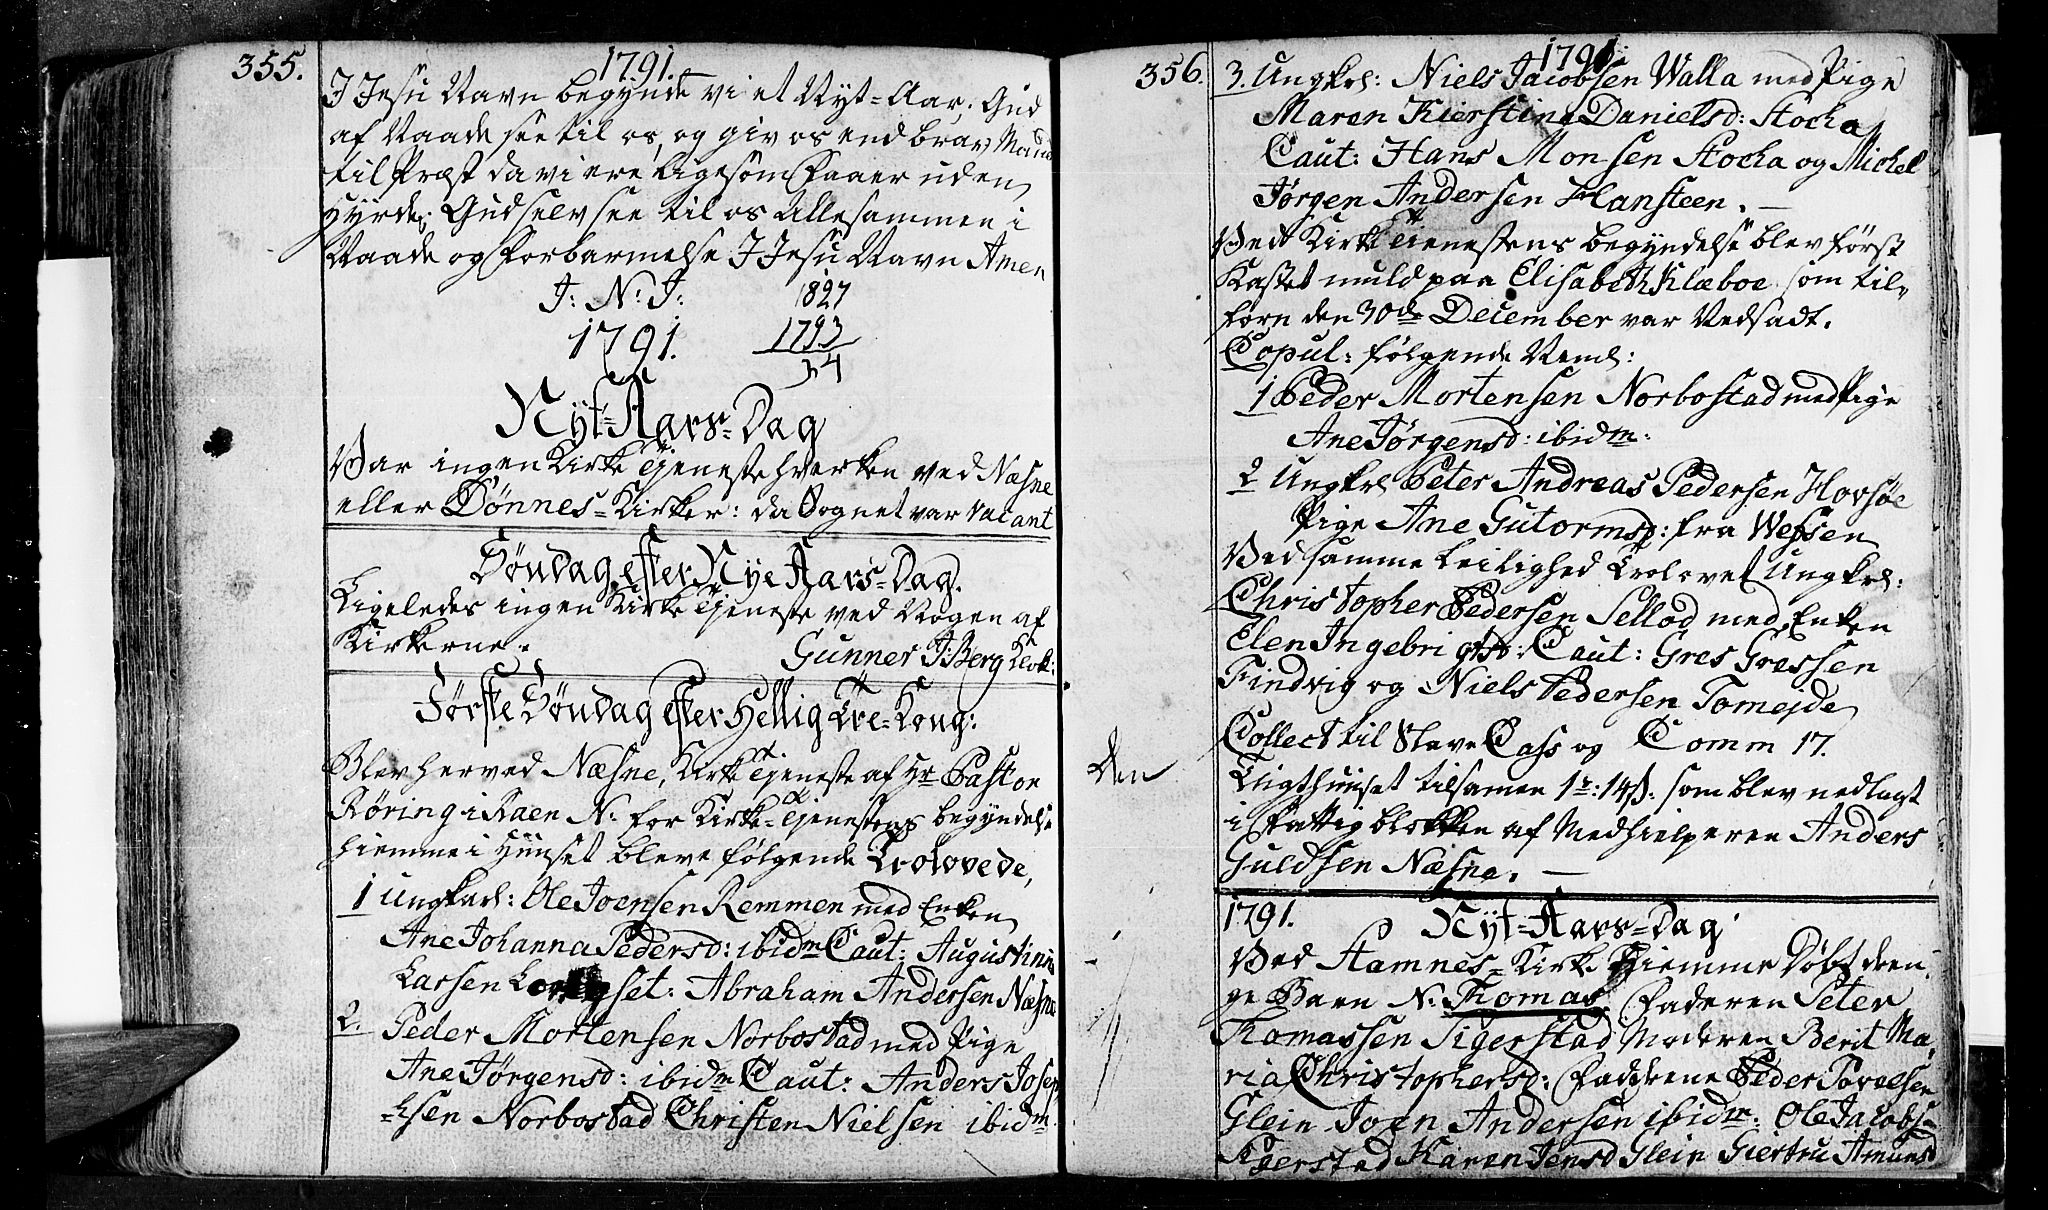 355.
1791.
I Jesu Navn begynde vi et Nyt-Aar. Gud
af Naade see til os, og giv os end brav Mand
til Præst da vi ere ligesom Faaer uden
Hyrde. Gud selv see til os Allesammen i
Naade og Forbarmelse I Jesu Navn Amen
J: N: J: 1827
1791. 1793
34
Nyt-Aars-Dag
Var ingen Kirke Tjeneste hverken ved Næsne
eller Dønnes-Kirker: da Sognet var vacant
Søndag efter Nye Aars-Dag.
Ligeledes ingen Kirke Tjeneste ved Nogen af
Kirkerne.
Gunner J: Berg Klok:
Første Søndag efter Hellig Tre-Kong:
Blev her ved Næsne, Kirke Tjeneste af Hr Pastor
Røring i Raen N: for Kirke-Tjenestens begyndelse
hiemme i Huuset bleve følgende Trolovede,
1 Ungkarl: Ole Joensen Remmen med Enken
Ane Johanna Pedersd: ibidm Caut: Augustinus
Larsen set: Abraham Andersen Næsne
2. Peder Mortensen Norbostad med Pige
Ane Jørgensd: ibidm Caut: Anders Josep
-hsen Norbostad Christen Nielsen ibidm
356.
1791.
3. Ungkrl: Niels Jacobsen Walla med Pige
Maren Kierstina Danielsd: Stocka
Caut: Hans Monsen Stocka og Michel
Jørgen Andersen Hansteen.
Ved Kirke Tienestens begyndelse blev først
kastet muld paa Elisabeth Klæboe som til-
forn den 30de December var Nedsadt.
Copul: følgende Neml:
1 Peder Mortensen Norbostad med Pige
Ane Jørgensd: ibidm:
2 Ungkrl Peter Andreas Pedersen Hovsøe
Pige Ane Gutormsd: fra Wefsen
Ved samme Leilighed Trolovet Ungkrl:
Christopher Pedersen Sellod med Enken
Elen Ingebrigtsd: Caut: Gres Gressen
Findvig og Niels Pedersen Tomejde
Collect til Slave Cass og Comm 17.
Tugthuuset tilsamen 1r: 14s: som blev nedlagt
i Fattigblokken af Medhielperen Anders
Guldsen Næsne.
Den
1791. Nyt-Aars-Dag
Ved Stamnes-Kirke Hiemme Døbt dren-
ge Barn N: Thomas Faderen Peter
Thomassen Tigerstad Moderen Berit Ma-
ria Christophersd: Fadderne Peder Povelsen
Glein Joen Andersen ibidm: Ole Jacobs:
Karen Jensd Glein Giertru Amunsd